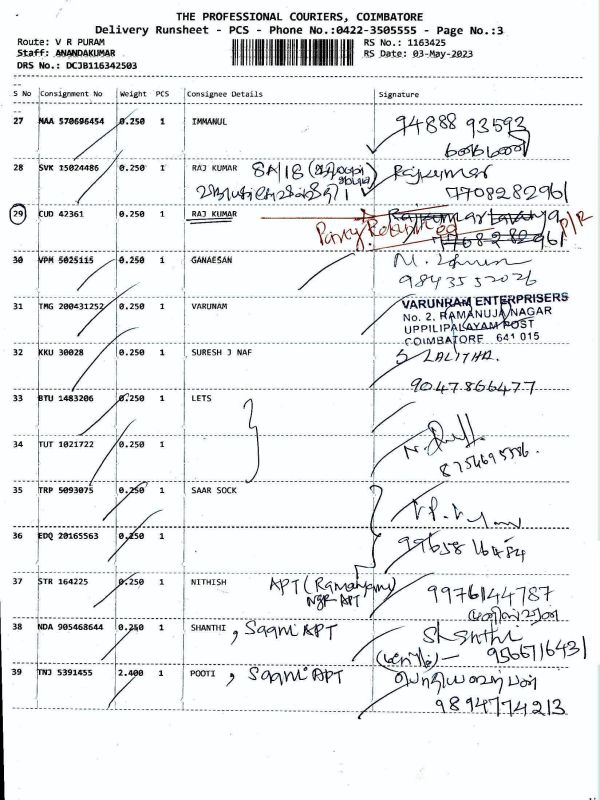 THE PROFESSIONAL COURIERS, COIMBATORE
Delivery Runsheet - PCS - Phone No.:0422-3505555 - Page No.:3
Route: V R PURAM
RS No.: 1163425
Staff: ANANDAKUMAR
RS Date: 03-May-2023
DRS No.: DCJB116342503
S No Consignment No Weight PCS Consignee Details Signature
27 MAA 570696454 0.250 1 IMMANUL 94888 93593
28 SVK 15024486 0.250 1 RAJ KUMAR 8A/18 Rajkumar
7708282961
29 CUD 42361 0.250 1 RAJ KUMAR
Party Returned P/R
7708282961
30 VPM 5025115 0.250 1 GANAESAN
9843552026
31 TMG 200431252 0.250 1 VARUNAM VARUNRAM ENTERPRISERS
No. 2, RAMANUJA NAGAR
UPPILIPALAYAM POST
COIMBATORE 641 015
32 KKU 30028 0.250 1 SURESH J NAF S LALITHA.
9047866477
33 BTU 1483206 0.250 1 LETS
34 TUT 1021722 0.250 1
35 TRP 5093075 0.250 1 SAAR SOCK
36 EDQ 20165563 0.250 1
99658 16484
37 STR 164225 0.250 1 NITHISH APT (Ramanyam) 9976144787
NGR APT
38 NDA 905468644 0.250 1 SHANTHI , Sagni APT Shanthi
9566716431
39 TNJ 5391455 2.400 1 POOTI , Sagni APT
9894774213